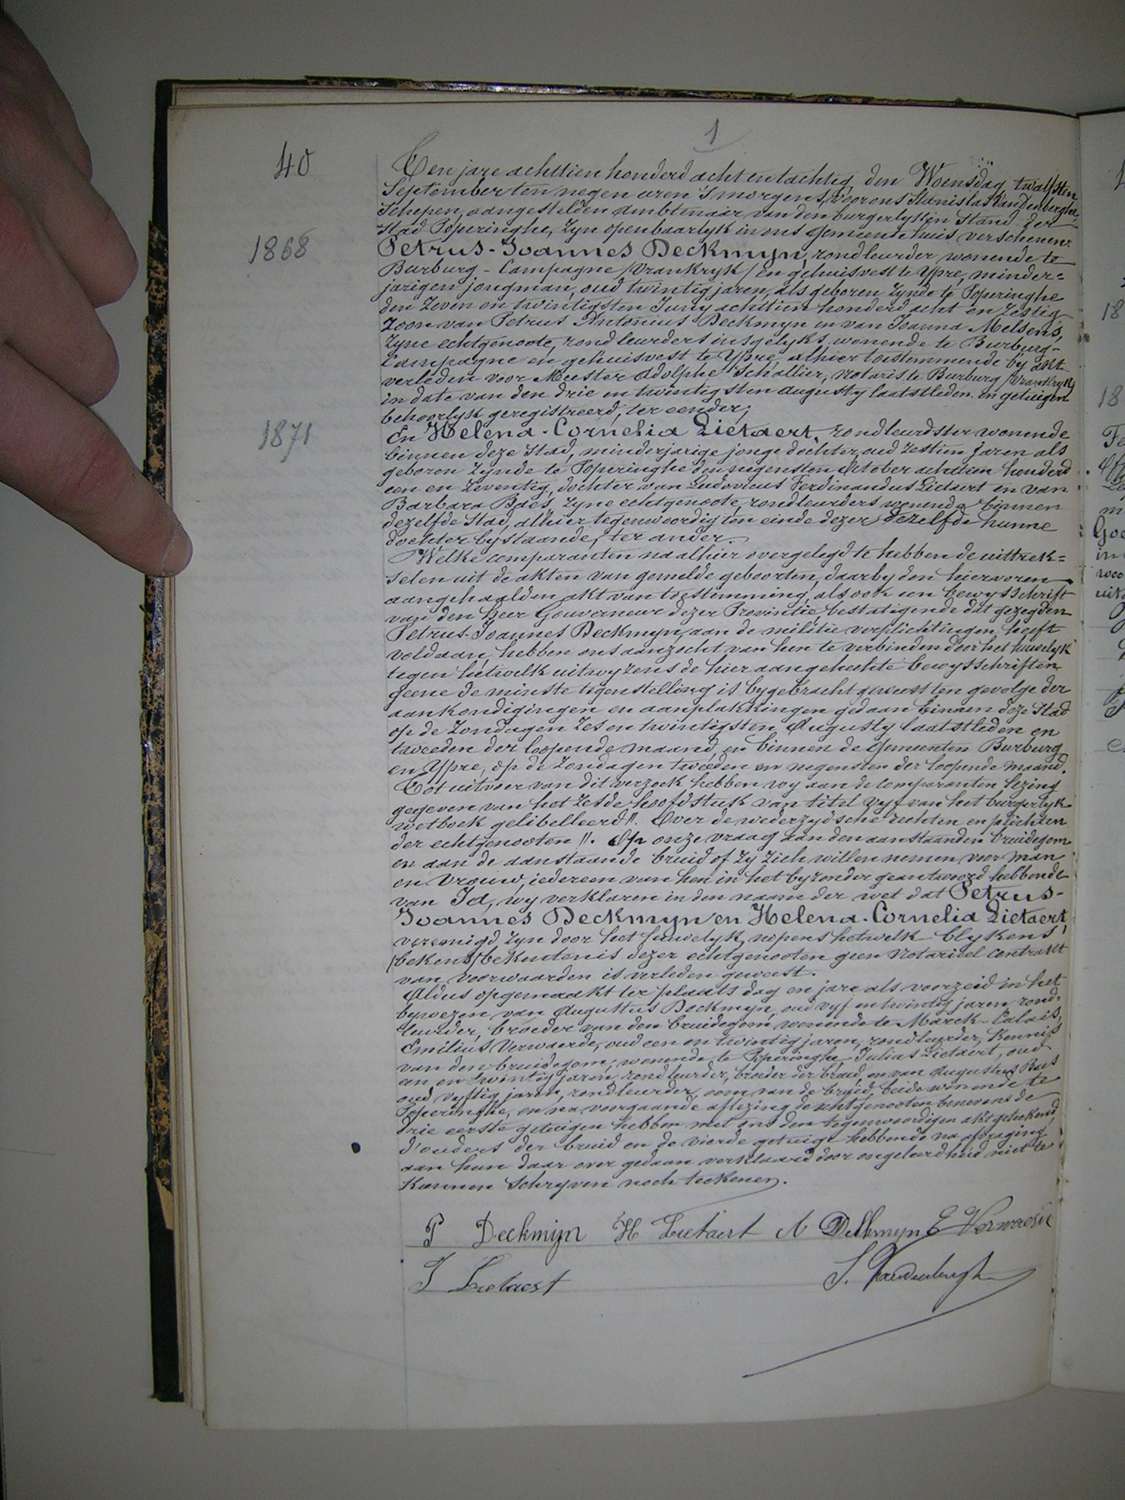 1
40
Ten jare achttien honderd acht en tachtig, den Woensdag twalfsten
September ten negen uren 's morgens, voor ons Stanislas Vandenberghe
Schepen, aangestelden Ambtenaar van den burgerlyken Stand der
Stad Poperinghe, zyn openbaarlyk in ons gemeentehuis verschenen:
1868
Petrus-Joannes Deckmyn, rondleurder, wonende te
Burburg-Campagne /Vrankryk/ en gehuisvest te Ypre, minder=
jarigen jongman, oud twintig jaren, als geboren zynde te Poperinghe
den zeven en twintigsten Juny achttien honderd acht en zestig
zoon van Petrus Antonius Deckmyn en van Joanna Melsens,
zyne echtgenoote, rondleurders insgelyks wonende te Burburg-
Campagne en gehuisvest te Ypre, alhier toestemmende by akt
verleden voor Meester Adolphe Schallier, notaris te Burburg /Vrankryk/
in date van den drie en twintigsten Augusty laatstleden en
behoorlyk geregistreerd, ter eender;
1871
En Helena-Cornelia Lietaert, rondleurdster wonende
binnen deze Stad, minderjarige jonge dochter, oud zestien jaren als
geboren zynde te Poperinghe den negensten October achttien honderd
een en zeventig, dochter van Ludovicus Ferdinandus Lietaert en van
Barbara Baes, zyne echtgenoote, rondleurders wonende binnen
dezelfde Stad, alhier tegenwoordig ten einde dezer dezelfde hunne
dochter bystaande, ter ander.
Welke comparanten na alhier overgelegd te hebben de uittrek=
selen uit de akten van gemelde geboorten, daarby den hiervoren
aangehaalden akt van toestemming, als ook een bewysschrift
van den Heer Gouverneur dezer Provintie, bestatigende dat gezegden
Petrus-Joannes Deckmyn, aan de militie verplichtingen heeft
voldaan, hebben ons aanzocht van hen te verbinden door het huwelyk
tegen hetwelk uitwyzens de hier aangehechte bewysschriften
geene de minste tegenstelling is bygebracht geweest ten gevolge der
aankondigingen en aanplakkingen gedaan binnen deze Stad
op de Zondagen zes en twintigsten Augusty laatstleden en
tweeden der loopende maand, en binnen de Gemeenten Burburg
en Ypre, op de Zondagen tweeden en negensten der loopende maand.
Tot uitvoer van dit verzoek hebben wy aan de comparanten lezing
gegeven van het zesde hoofdstuk van titel vyf van het burgerlyk
wetboek gelibelleerd ". Over de wederzydsche rechten en plichten
der echtgenooten ". Op onze vraag aan den aanstaanden bruidegom
en aan de aanstaande bruid of zy zich willen nemen voor man
en vrouw, iedereen van hen in het byzonder geantwoord hebbende
van Ja, wy verklaren in den naam der wet dat Petrus-
Joannes Deckmyn en Helena-Cornelia Lietaert,
vereenigd zyn door het huwelyk, nopens hetwelk blykens
/bekens/ bekentenis dezer echtgenooten geen notarieel contrakt
van voorwaarden is verleden geweest.
Aldus opgemaakt ter plaats dag en jare als voorzeid in het
bywezen van Augustus Deckmyn, oud vyf en twintig jaren, rond-
leurder, broeder van den bruidegom, wonende te Marck-Calais,
Emilius Verwaerde, oud een en twintig jaren, rondleurder, kennis
van den bruidegom, wonende te Poperinghe, Julius Lietaert, oud
een en twintig jaren, rondleurder, broeder der bruid, en van Augustus Baes
oud vyftig jaren, rondleurder, oom van de bruid, beide wonende te
Poperinghe, en na voorgaande aflezing de echtgenooten benevens de
drie eerste getuigen hebben met ons den tegenwoordigen akt geteekend,
d'ouders der bruid en de vierde getuige hebbende na afvraging
aan hun daar over gedaan verklaard door ongeleerdheid niet te
kunnen schryven noch teekenen.
P Deckmijn H Lietaert A Dekkmyn E Verwaerde
J Lietaert S. Vandenbergh